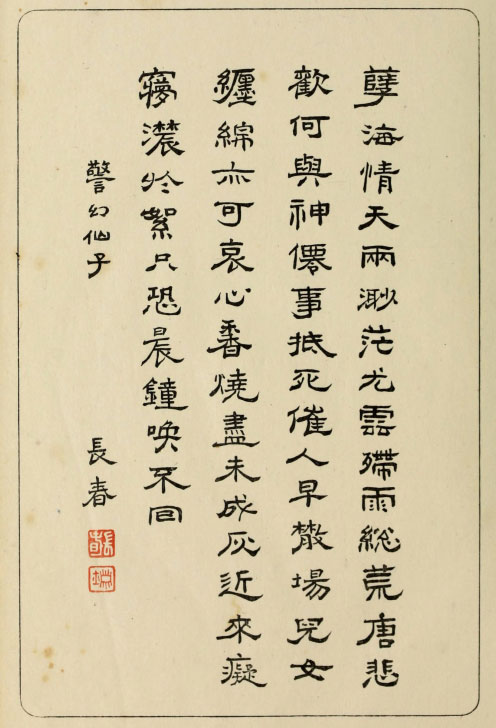 孽海情天兩渺茫尤雲殢雨総荒唐悲
歡何與神僊事抵死催人早散場兒女
纏綿亦可哀心香燒盡未成灰近來癡
夢濃於絮只恐晨鐘喚不回
警幻仙子
長春